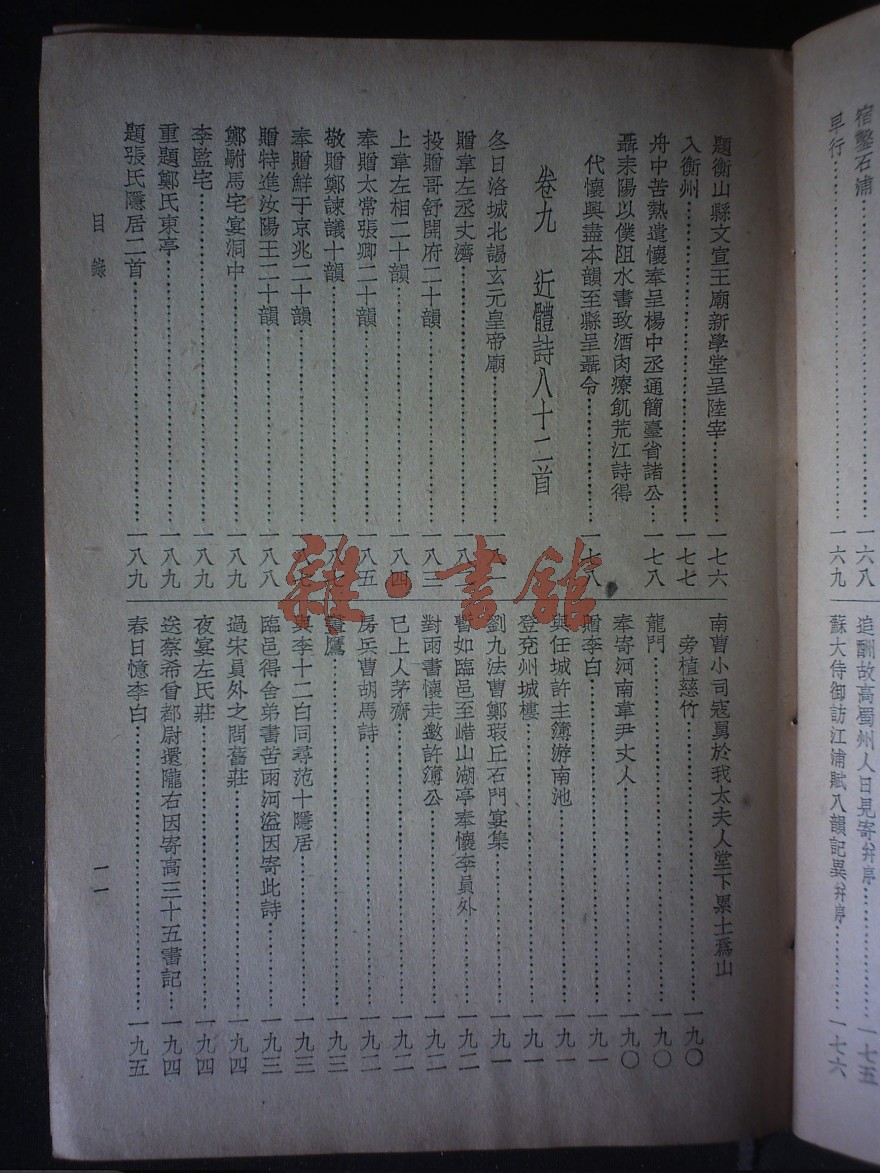 宿鑿石浦……一六八
早行……一六九
追酬故高蜀州人日見寄并序……一七五
蘇大侍御訪江浦賦八韻記異并序……一七六
題衡山縣文宣王廟新學堂呈陸宰……一七六
入衡州……一七七
舟中苦熱遣懷奉呈楊中丞通簡臺省諸公……一七八
聶耒陽以僕阻水書致酒肉療飢荒江詩得
代懷興盡本韻至縣呈聶令……一七八
卷九 近體詩八十二首
冬日洛城北謁玄元皇帝廟……一八一
贈韋左丞丈濟……一八
投贈哥舒開府二十韻……一八三
上韋左相二十韻……一八四
奉贈太常張卿二十韻……一八五
敬贈鄭諫議十韻……一八
奉贈鮮于京兆二十韻……一八七
贈特進汝陽王二十韻……一八八
鄭駙馬宅宴洞中……一八九
李監宅……一八九
重題鄭氏東亭……一八九
題張氏隱居二首……一八九
南曹小司寇舅於我太夫人堂下累土爲山
旁植慈竹……一九〇
龍門……一九〇
奉寄河南韋尹丈人……一九〇
贈李白……一九一
與任城許主簿游南池……一九一
登兗州城樓……一九一
劉九法曹鄭瑕丘石門宴集……一九一
暫如臨邑至㟙山湖亭奉懷李員外……一九二
對雨書懷走邀許簿公……一九二
已上人茅齋……一九二
房兵曹胡馬詩……一九二
畫鷹……一九三
與李十二白同尋范十隱居……一九三
臨邑得舍弟書苦雨河溢因寄此詩……一九三
過宋員外之問舊莊……一九四
夜宴左氏莊……一九四
送蔡希曾都尉還隴右因寄高三十五書記……一九四
春日憶李白……一九五
目錄
一一
雜·書舘